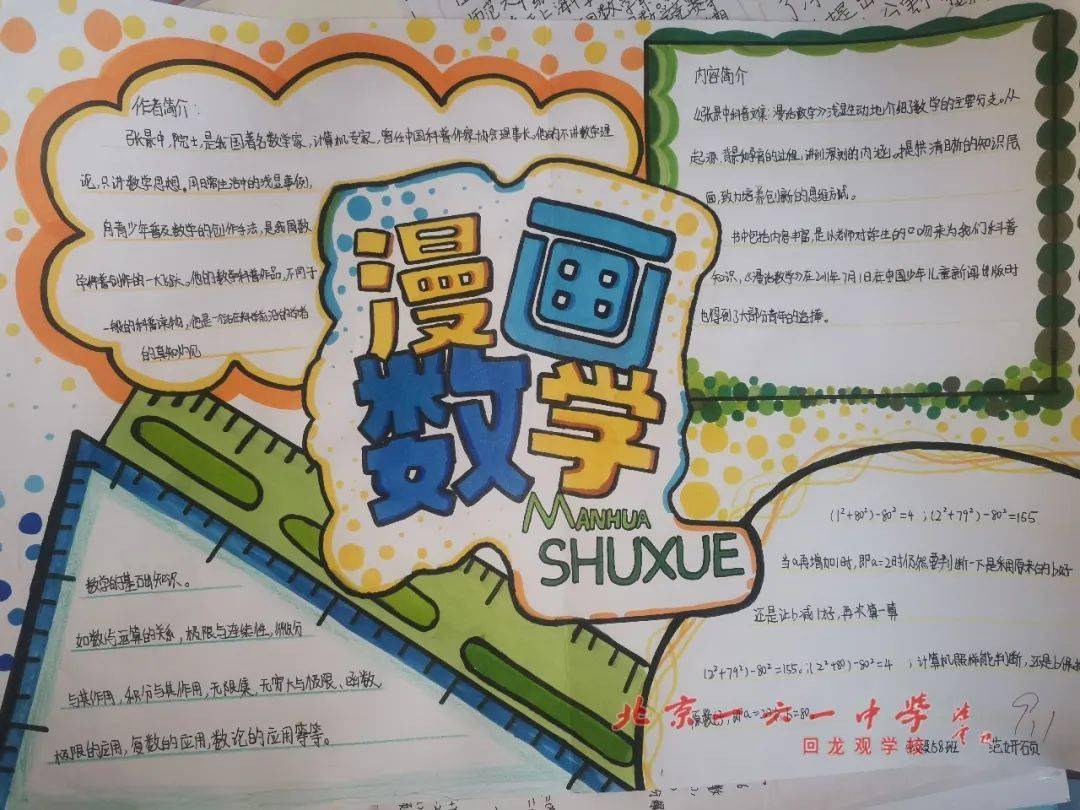 作者简介：
张景中，院士，是我国著名数学家，计算机专家，曾任中国科普作家协会理事长。他的不讲数学理
论，只讲数学思想。用日常生活中的浅显事例，
向青少年普及数学的创作手法，是我国数
学科普创作的一大飞跃。他的数学科普作品，不同于
一般的科普读物，他是一个站在科学前沿的学者
的真知灼见
内容简介
《张景中科普文集：漫话数学》浅显生动地介绍了数学的主要分支。从
起源、背景和孕育的过程，讲到深刻的内涵。提供清晰的知识层
面，致力培养创新的思维方式。
书中包括内容丰富，是以老师对学生的口吻来为我们科普
知识，《漫话数学》在2011年7月1日在中国少年儿童新闻出版时
也得到了大部分青年的选择。
漫画
数学
MANHUA
SHUXUE
数学的基础知识。
如数与运算的关系，极限与连续性，微分
与其作用，积分与其作用，无限集，无穷大与极限、函数
极限的应用，复数的应用，数论的应用等等。
(1²+80²)-80²=4 ；(2²+79²)-80²=155
当a再增加1时，即a=2时仍然要判断一下是采用原来的b好
还是让b减1好，再次算一算
(2²+79²)-80²=155。；(2²+80)-80²=4 ；计算机照样能判断，还是b保持
原数好，即a=2
=80
北京一六一中学
回龙观学校
58班 范妍硕